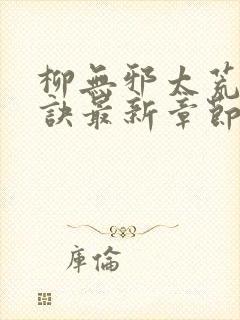 柳無邪太荒
訣最新章節
庫倫